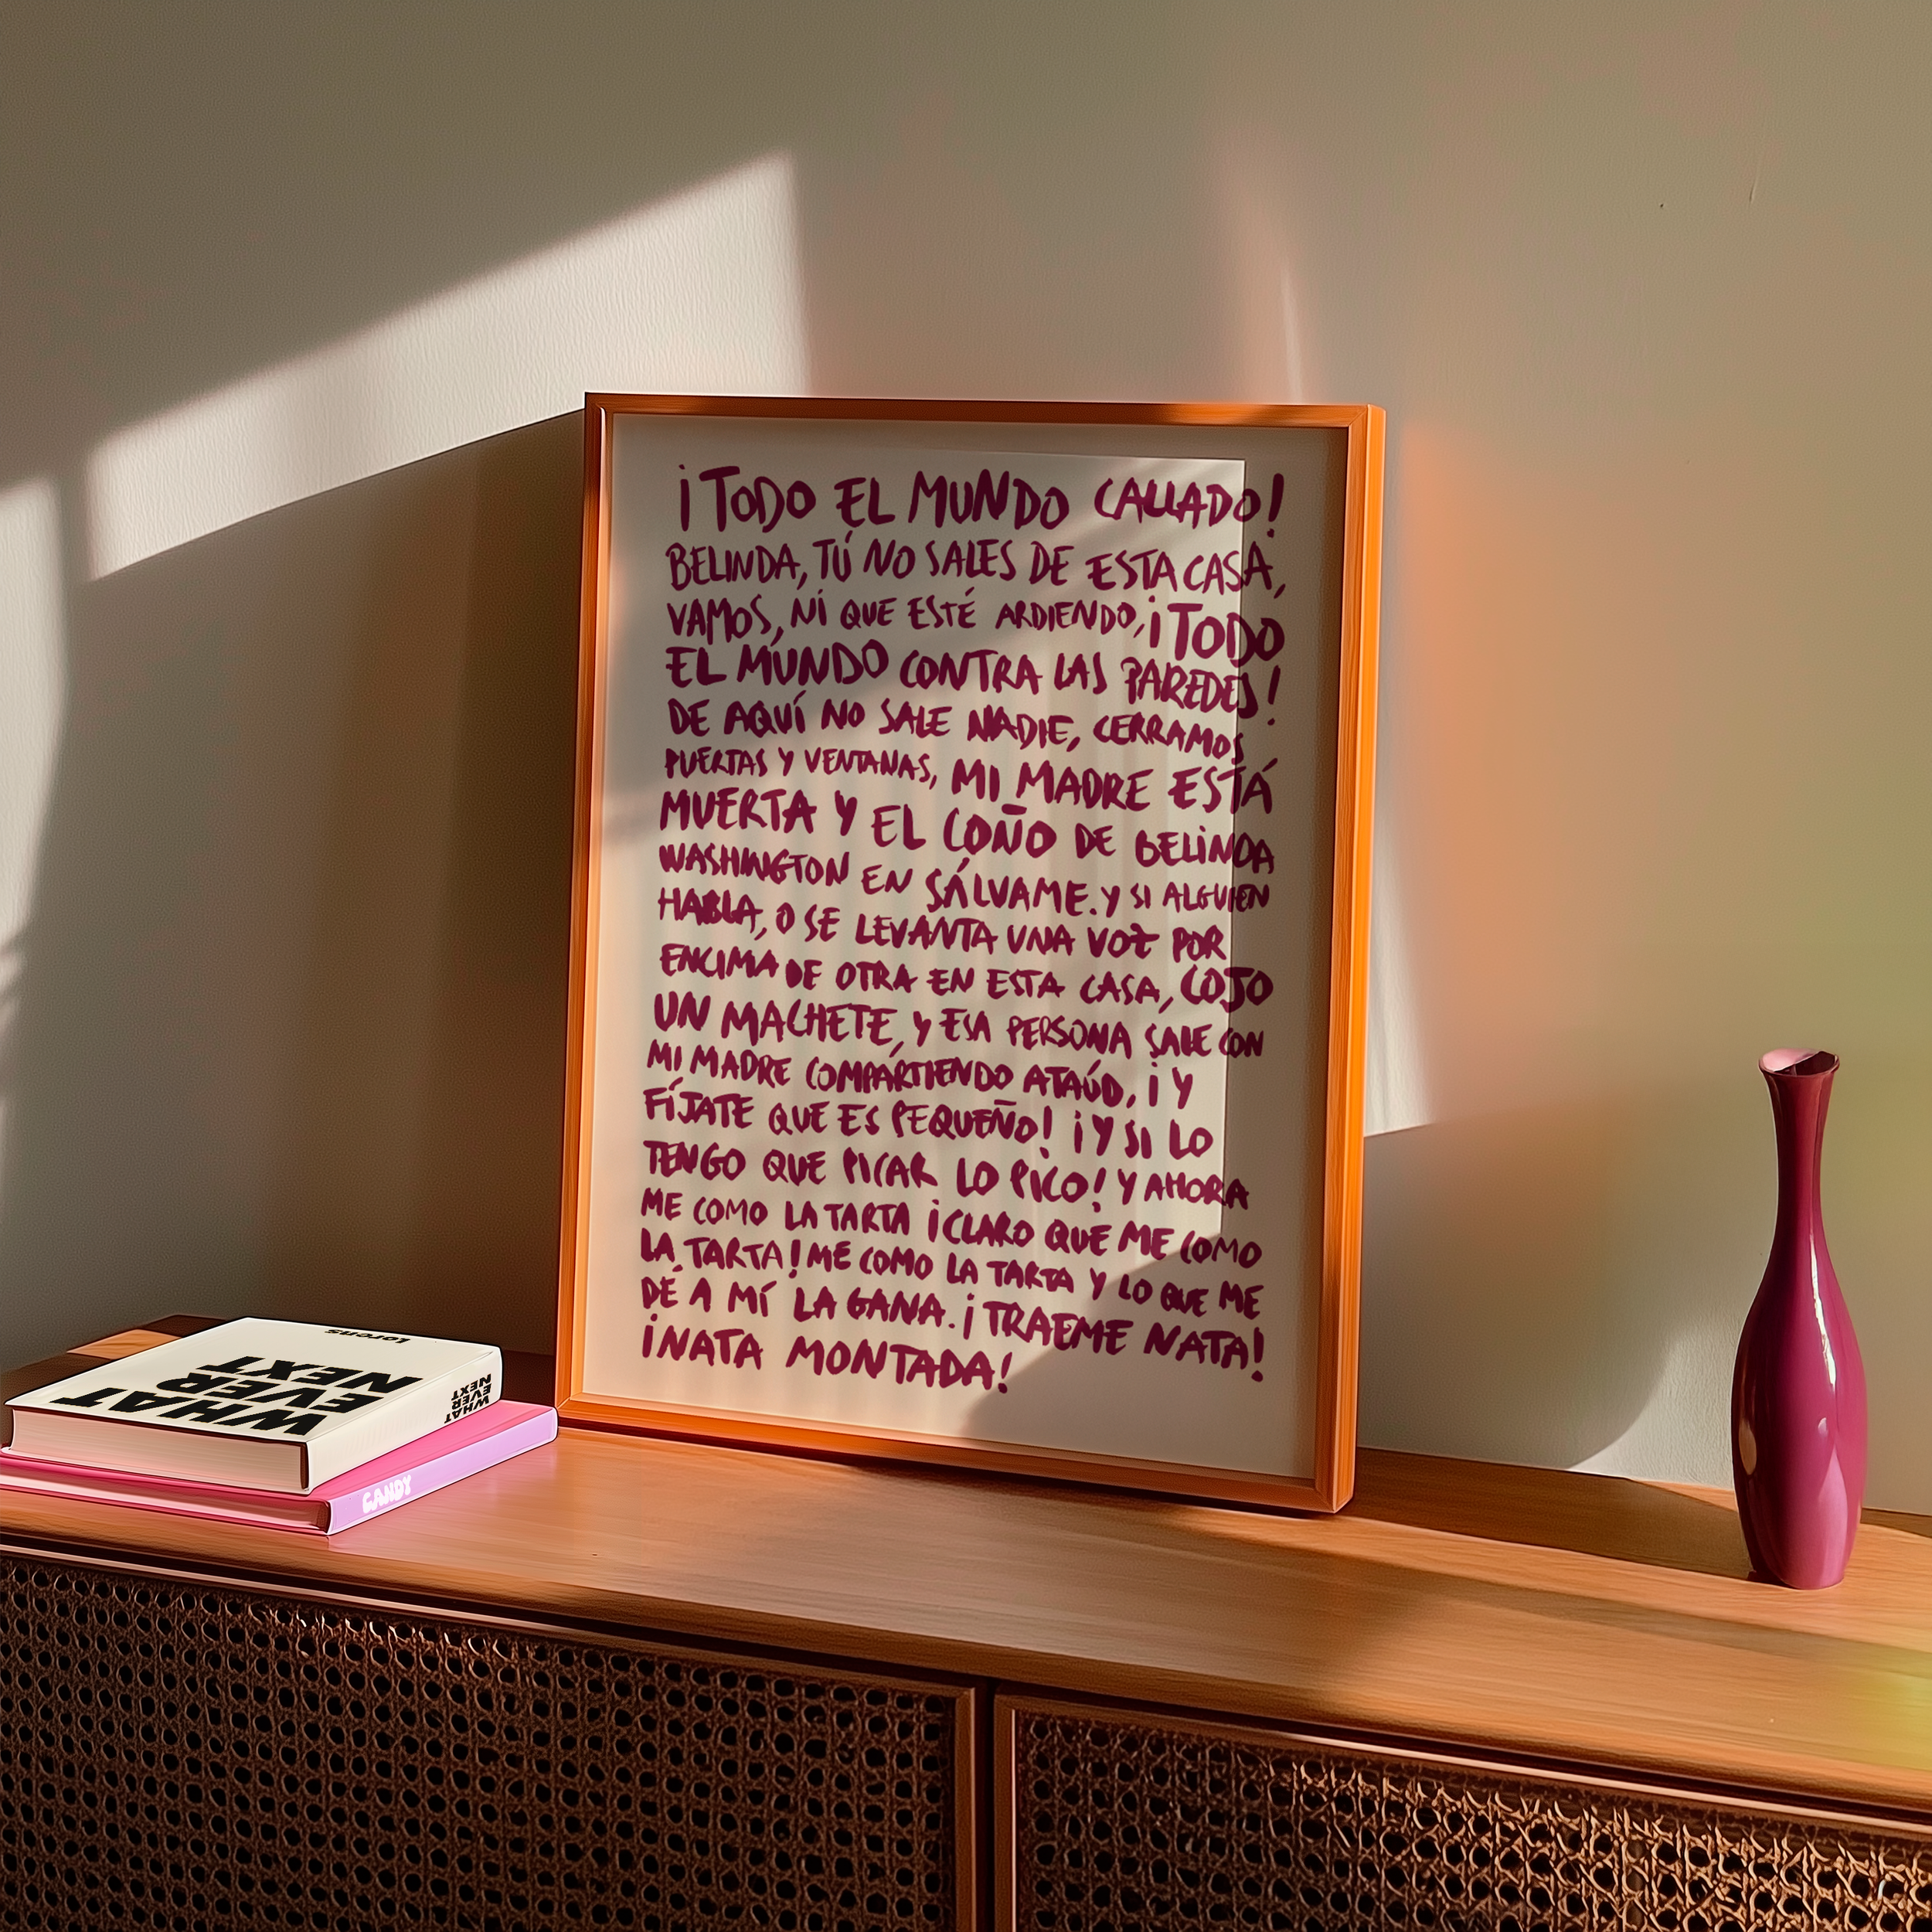 ¡TODO EL MUNDO CALLADO!
BELINDA, TÚ NO SALES DE ESTA CASA,
VAMOS, NI QUE ESTÉ ARDIENDO, ¡TODO
EL MUNDO CONTRA LAS PAREDES!
DE AQUÍ NO SALE NADIE, CERRAMOS
PUERTAS Y VENTANAS, MI MADRE ESTÁ
MUERTA Y EL COÑO DE BELINDA
WASHINGTON EN SÁLVAME. Y SI ALGUIEN
HABLA, O SE LEVANTA UNA VOZ POR
ENCIMA DE OTRA EN ESTA CASA, COJO
UN MACHETE, Y ESA PERSONA SALE CON
MI MADRE COMPARTIENDO ATAÚD, ¡Y
FÍJATE QUE ES PEQUEÑO! ¡Y SI LO
TENGO QUE PICAR LO PICO! Y AHORA
ME COMO LA TARTA ¡CLARO QUE ME COMO
LA TARTA! ME COMO LA TARTA Y LO QUE ME
DÉ A MÍ LA GANA. ¡TRAEME NATA!
¡NATA MONTADA!
Lorens
WHAT
EVER
NEXT
WHAT
EVER
NEXT
CANDY